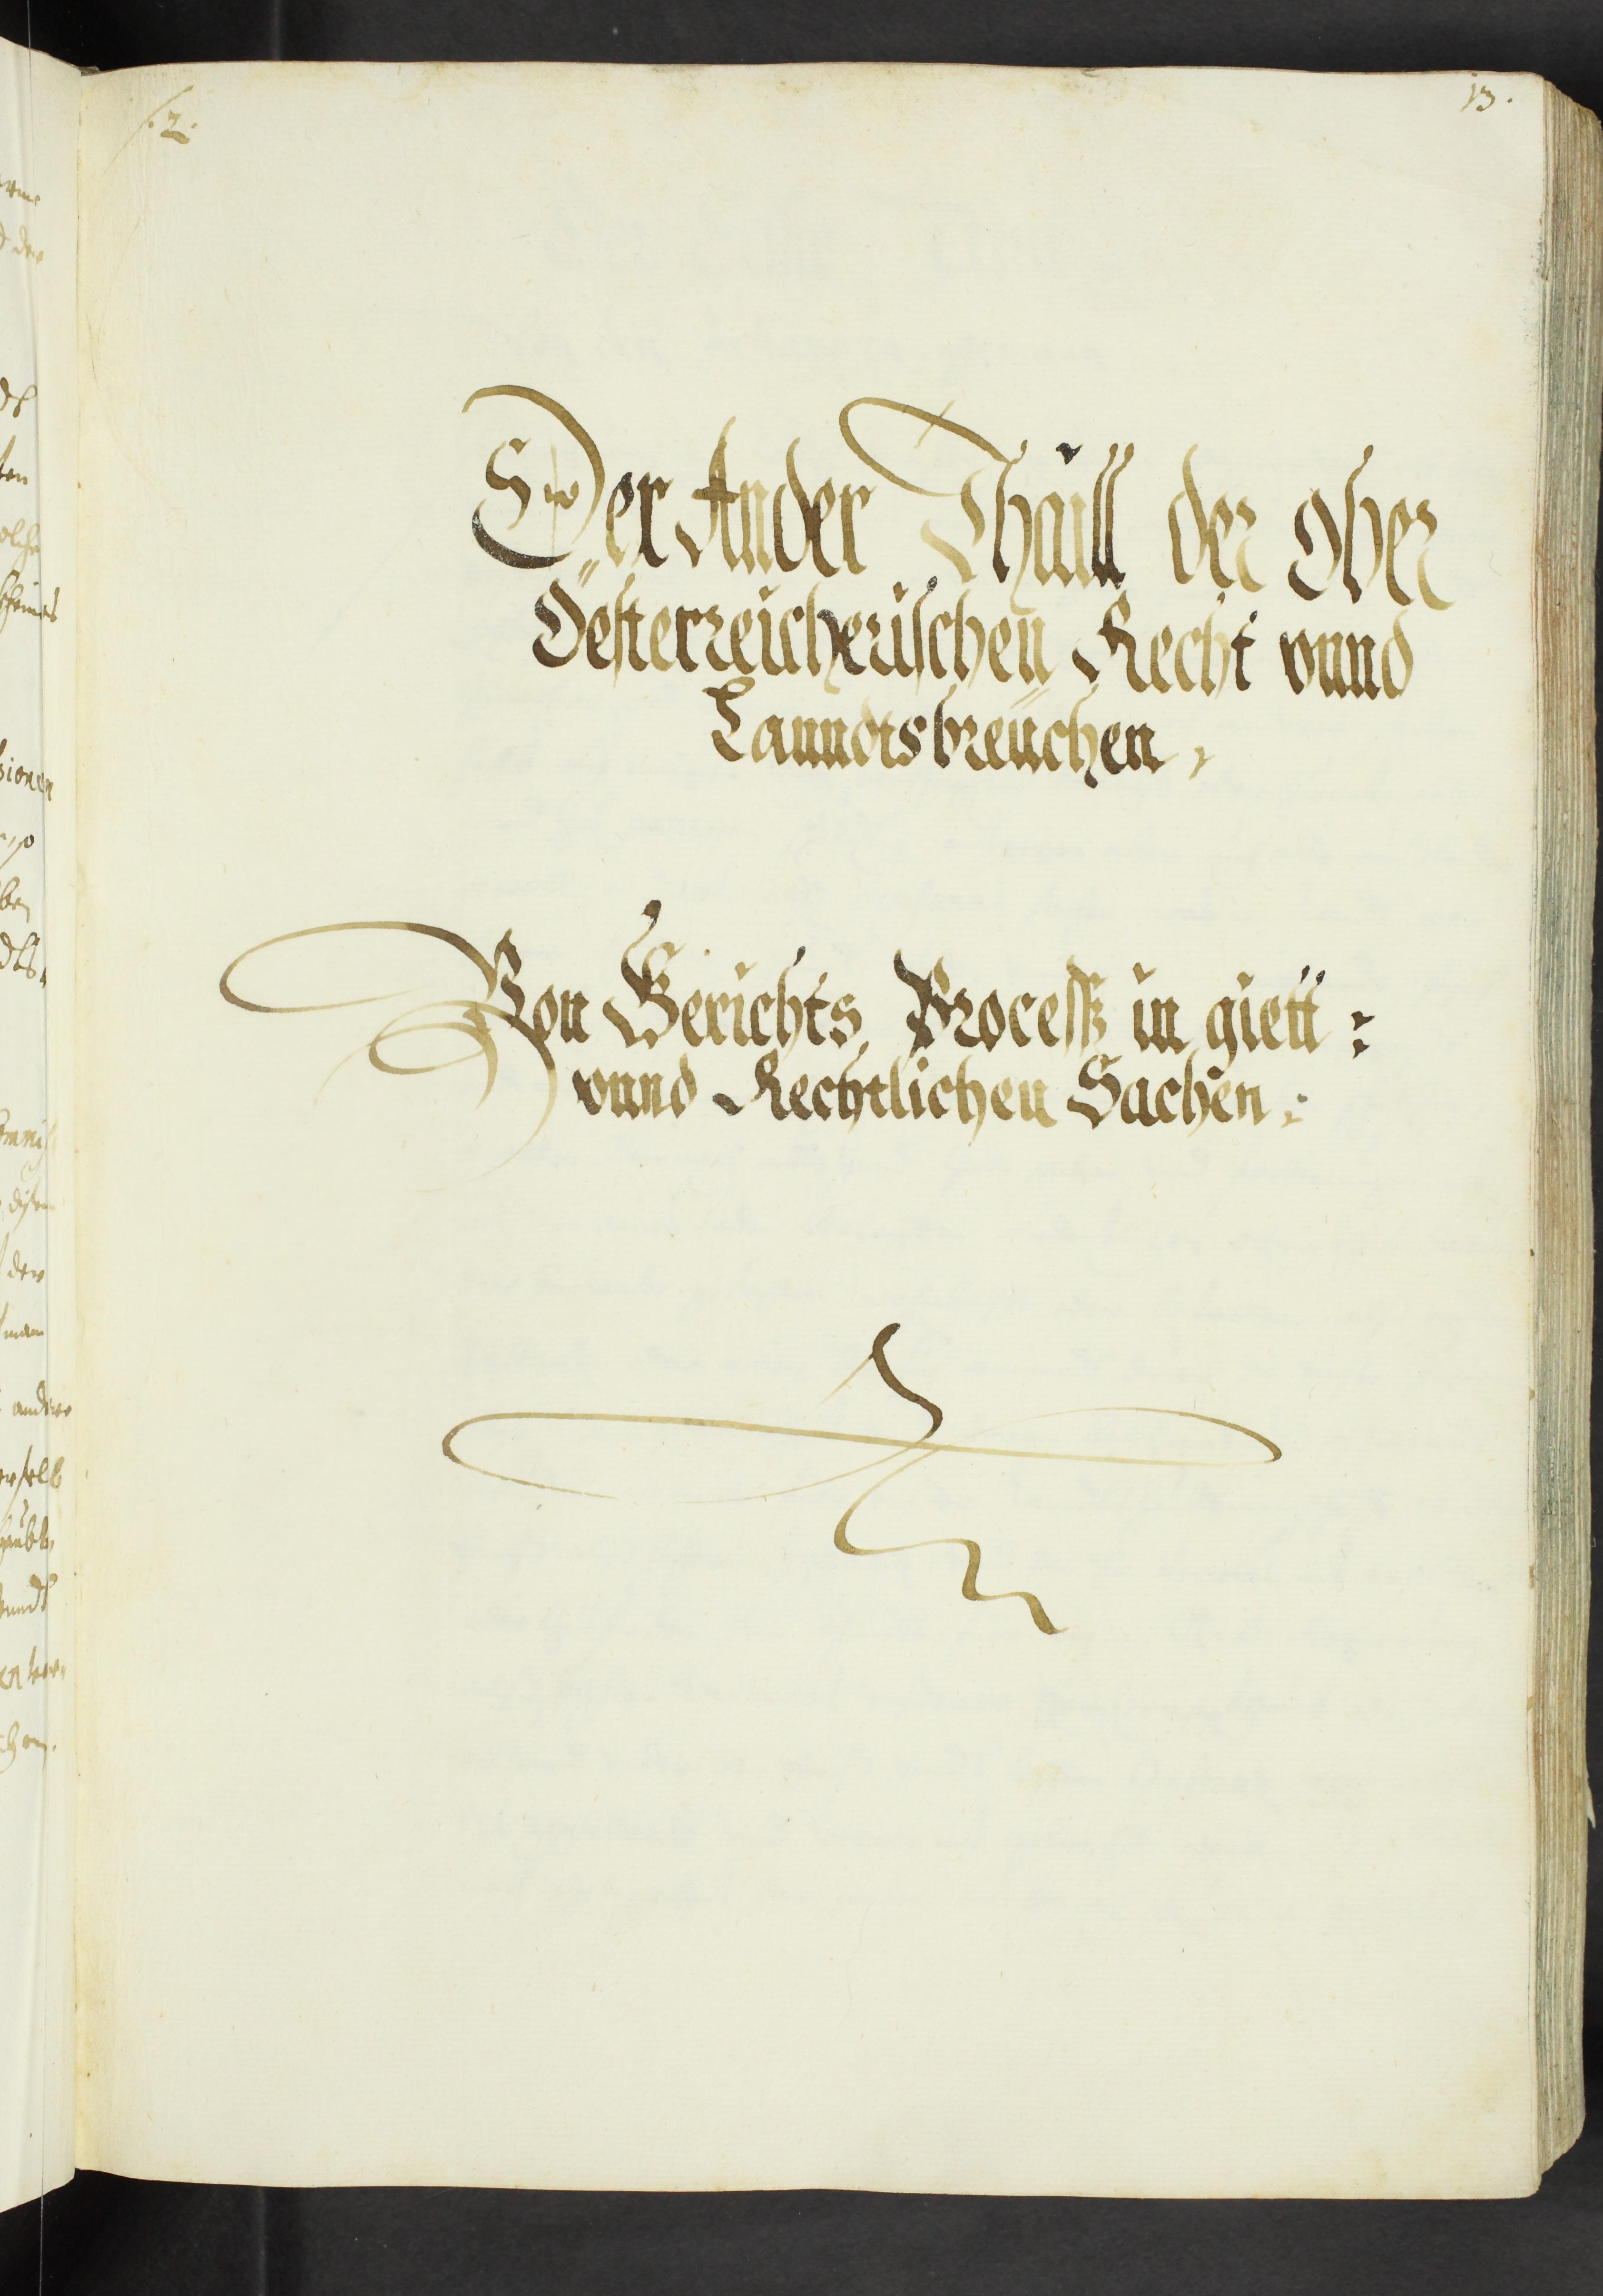 .2.
13.
Der Ander Thaill der Ober
Öesterreicherischen Recht vnnd
Lanndtsbreüchen,
Von Gerichts Process in giett:
vnnd Rechtlichen Sachen: